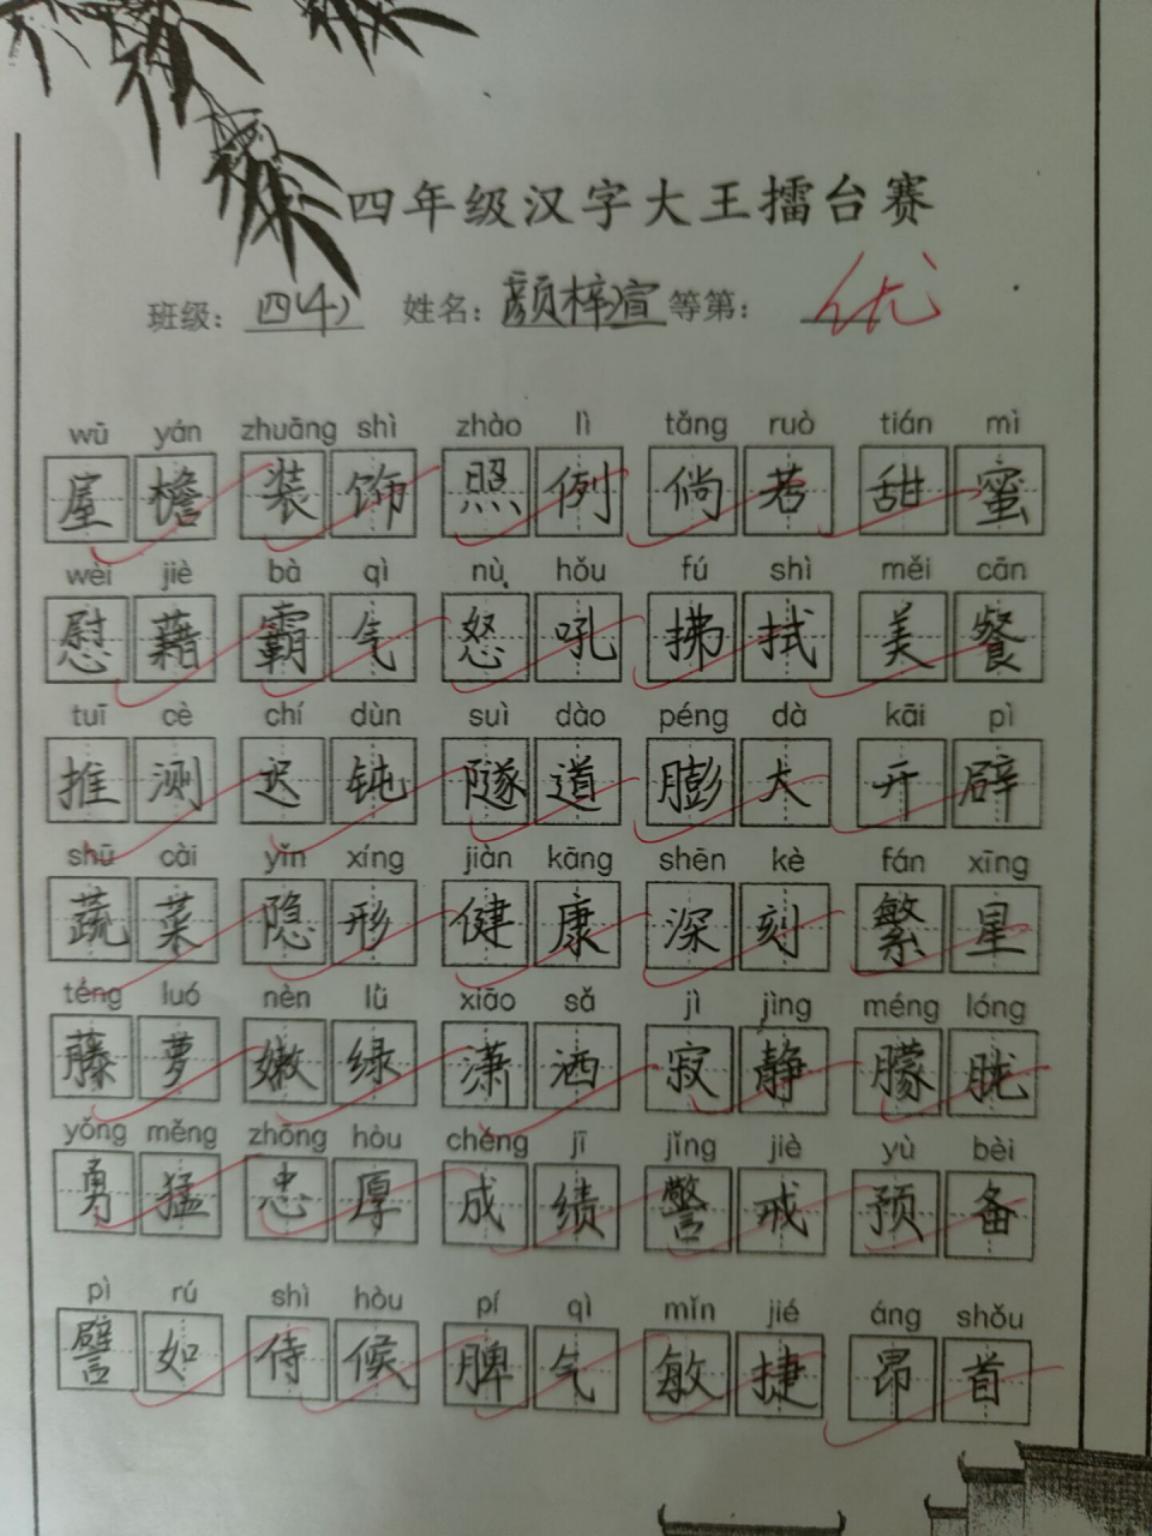 四年级汉字大王擂台赛
班级：四(4) 姓名：颜梓瑄 等第：优
wū yán zhuāng shì zhào lì tǎng ruò tián mì
屋檐 装饰 照例 倘若 甜蜜
wèi jiè bà qì nù hǒu fú shì měi cān
慰藉 霸气 怒吼 拂拭 美餐
tuī cè chí dùn suì dào péng dà kāi pì
推测 迟钝 隧道 膨大 开辟
shū cài yǐn xíng jiàn kāng shēn kè fán xīng
蔬菜 隐形 健康 深刻 繁星
téng luó nèn lǜ xiāo sǎ jì jìng méng lóng
藤萝 嫩绿 潇洒 寂静 朦胧
yǒng měng zhōng hòu chéng jī jǐng jiè yù bèi
勇猛 忠厚 成绩 警戒 预备
pì rú shì hòu pí qì mǐn jié áng shǒu
譬如 侍候 脾气 敏捷 昂首